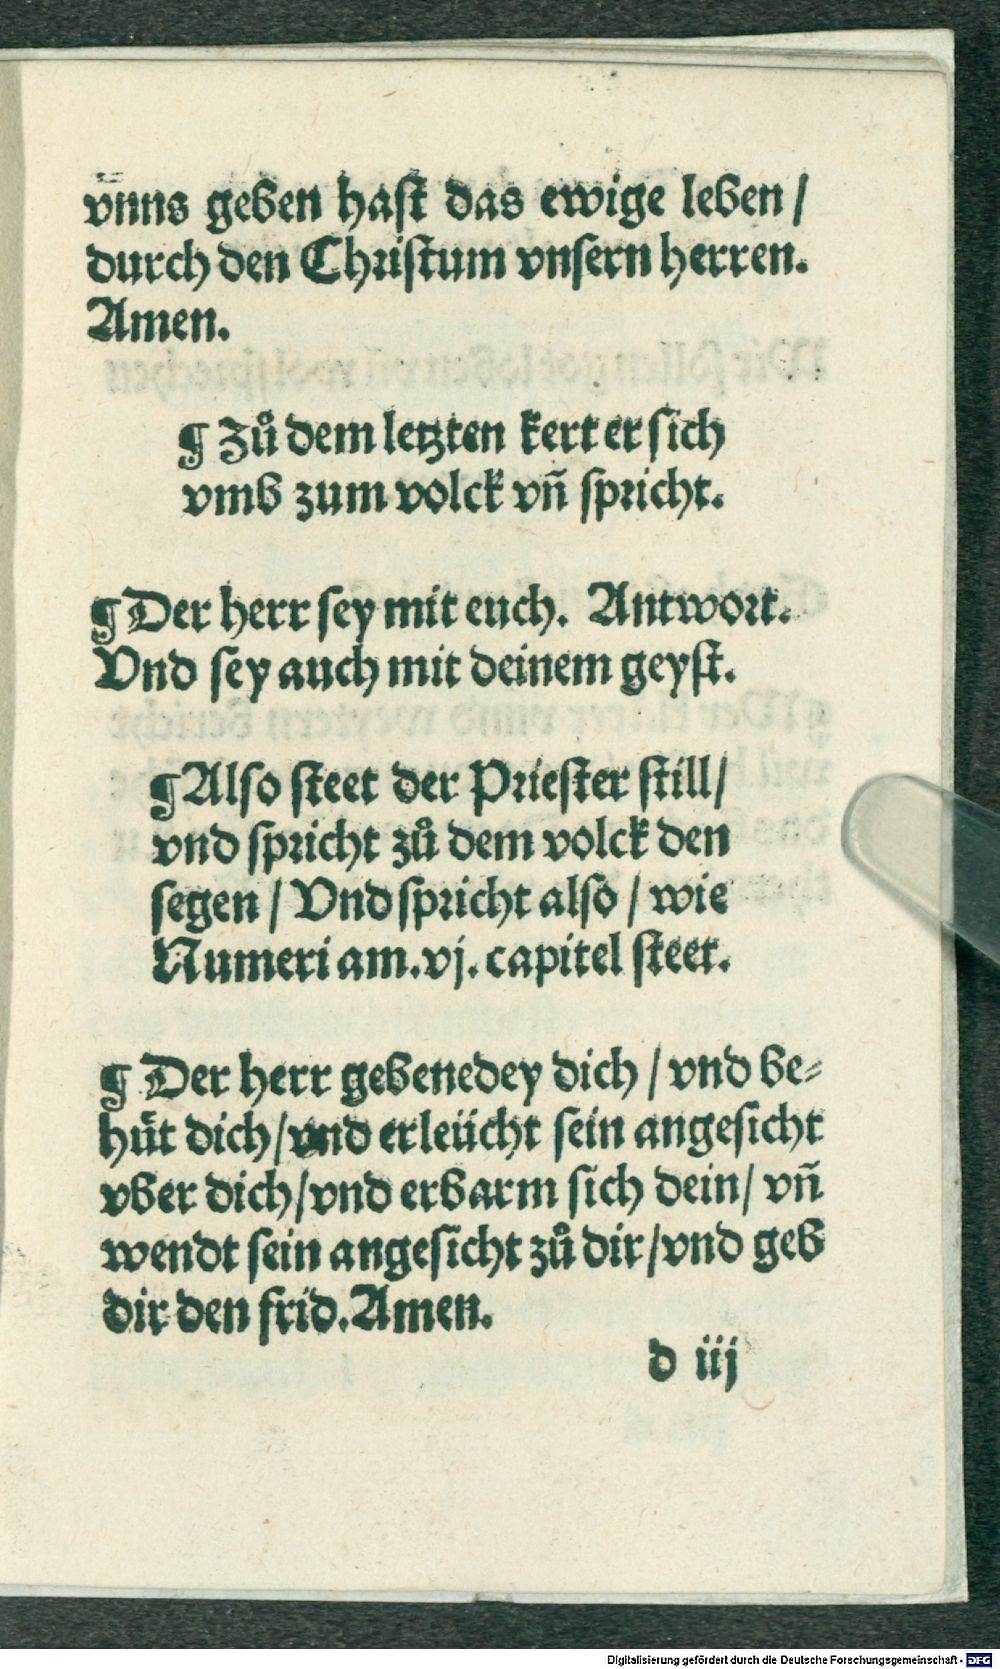 vñns geben hast das ewige leben /
durch den Christum vnsern herren.
Amen.
¶ Zů dem letzten kert er sich
vmb zum volck vñ spricht.
¶ Der herr sey mit euch. Antwort.
Vnd sey auch mit deinem geyst.
¶ Also steet der Priester still /
vnd spricht zů dem volck den
segen / Vnd spricht also / wie
Numeri am .vj. capitel steet.
¶ Der herr gebenedey dich / vnd be⸗
hüt dich / vnd erleücht sein angesicht
vber dich / vnd erbarm sich dein / vñ
wendt sein angesicht zů dir / vnd geb
dir den frid. Amen.
d iij
Digitalisierung gefördert durch die Deutsche Forschungsgemeinschaft - DFG